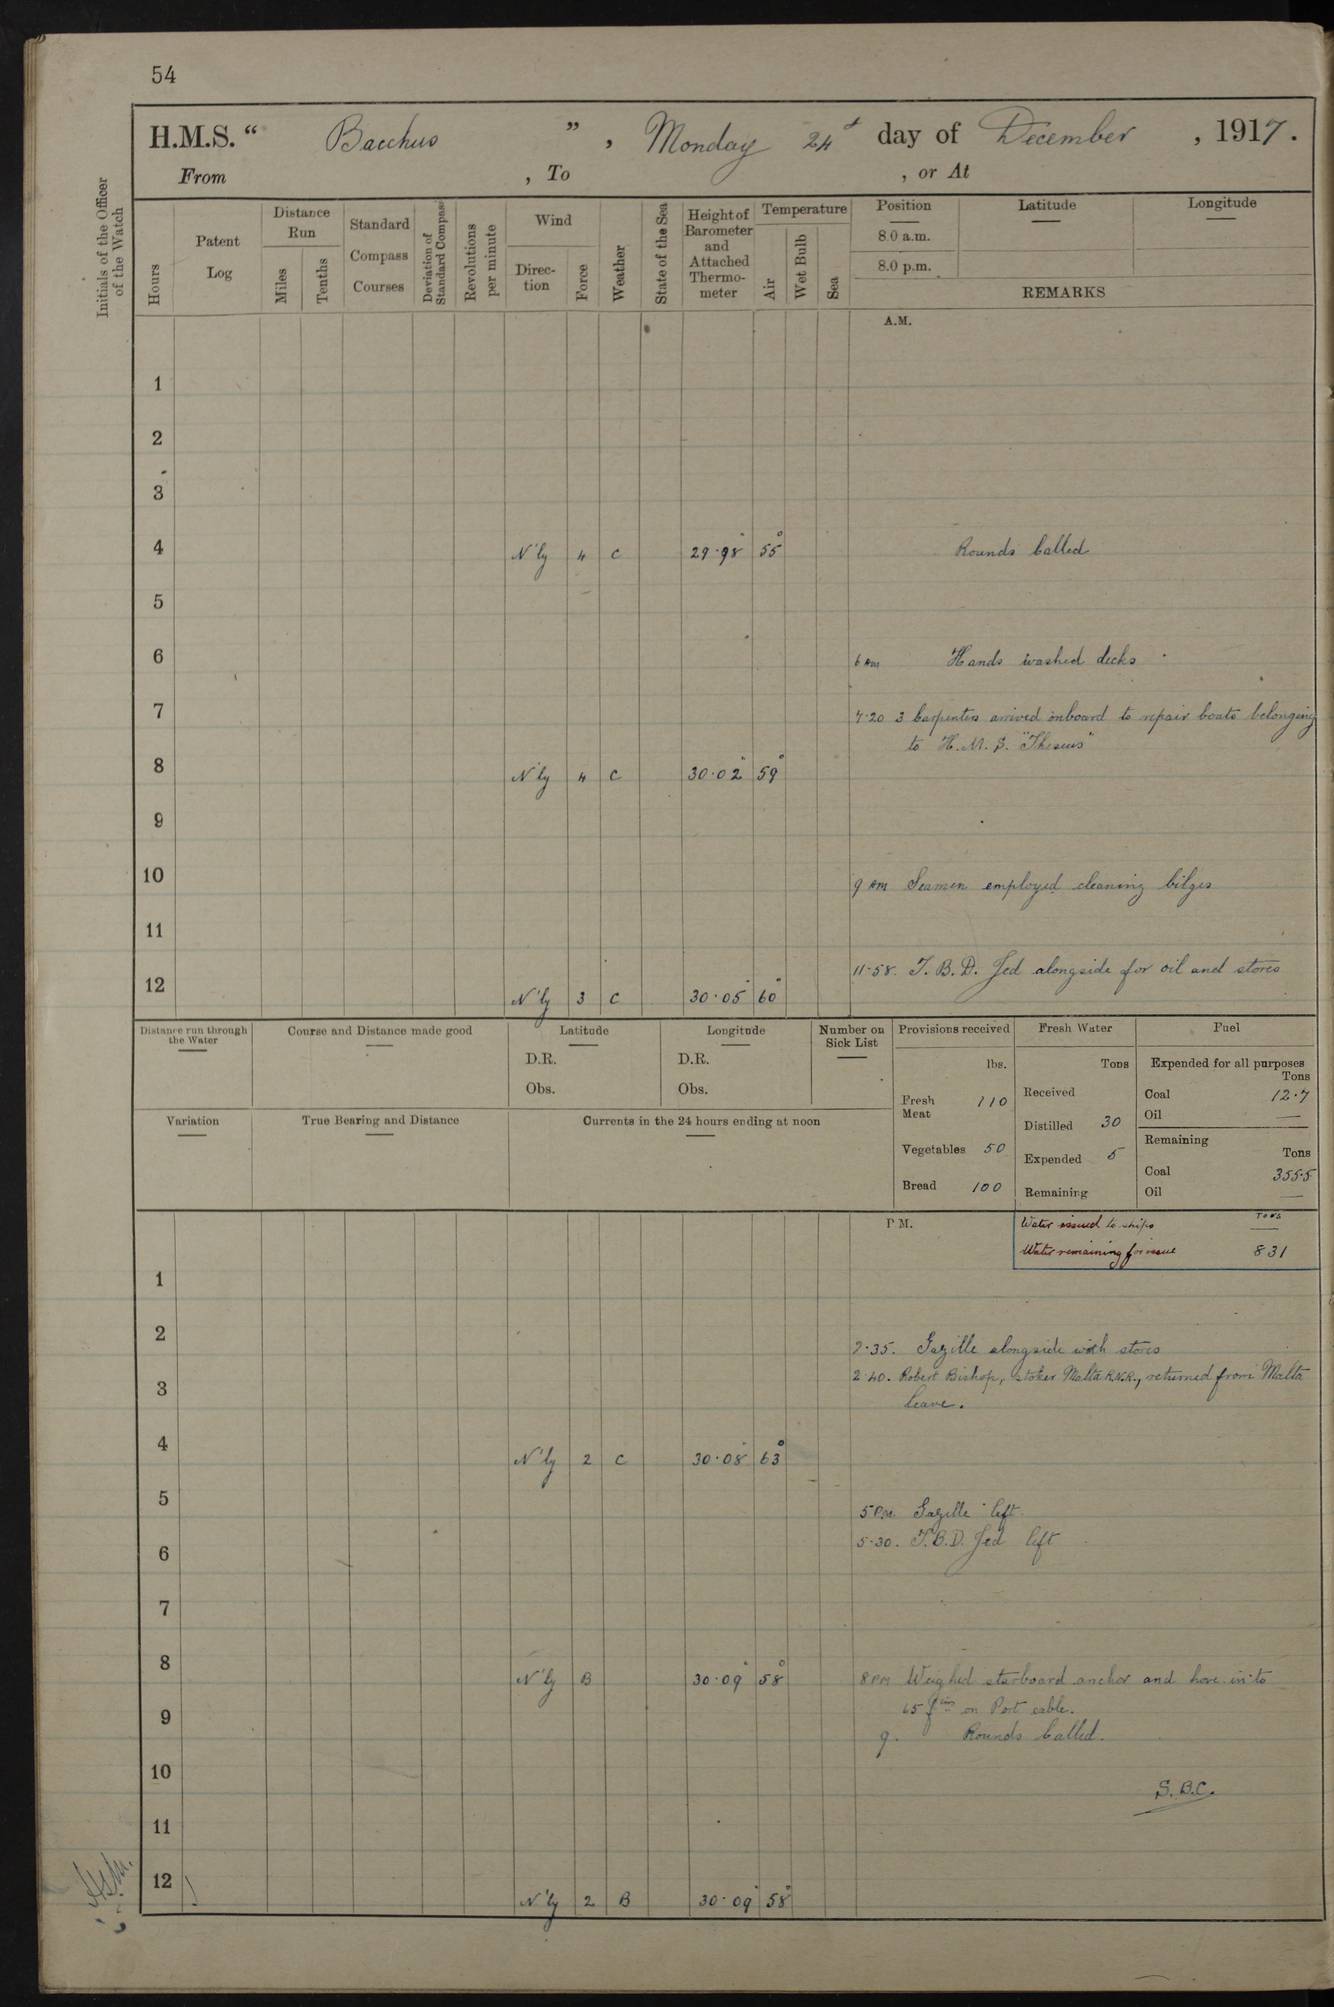 54
H.M.S. “ Bacchus ” , Monday 24th day of December , 1917.
From , To , or At
Initials of the Officer of the Watch
Hours
Patent Log
Distance Run
Miles
Tenths
Standard Compass Courses
Deviation of Standard Compass
Revolutions per minute
Wind
Direc-tion
Force
Weather
State of the Sea
Height of Barometer and Attached Thermo-meter
Temperature
Air
Wet Bulb
Sea
Position
8.0 a.m.
8.0 p.m.
Latitude
Longitude
REMARKS
A.M.
1
2
3
4 N'ly 4 C 29.98 55° Rounds Called
5
6 6 AM Hands washed decks
7 7.20 3 Carpenters arrived onboard to repair boats belonging
to H.M.S. "Theseus"
8 N'ly 4 C 30.02 59°
9
10 9 AM Seamen employed cleaning bilges
11
11.58. T.B.D. Jed alongside for oil and stores
12 N'ly 3 C 30.05 60°
Distance run through the Water
Course and Distance made good
Latitude
D.R.
Obs.
Longitude
D.R.
Obs.
Number on Sick List
Provisions received
lbs.
Fresh Meat 110
Vegetables 50
Bread 100
Fresh Water
Tons
Received
Distilled 30
Expended 5
Remaining
Fuel
Expended for all purposes
Tons
Coal 12.7
Oil —
Remaining
Tons
Coal 355.5
Oil —
Variation
True Bearing and Distance
Currents in the 24 hours ending at noon
P.M.
Water issued to ships Tons —
Water remaining for issue 831
1
2
2.35. Gazille alongside with stores
3 2.40. Robert Bishop, stoker Malta R.N.R., returned from Malta
leave.
4 N'ly 2 C 30.08 63°
5 5 P.M. Gazille left
5.30. T.B.D. Jed left
6
7
8 N'ly B 30.09 58° 8 PM Weighed starboard anchor and hove in to
65 fms on Port cable.
9 9. Rounds Called.
10
S.B.C.
11
12 N'ly 2 B 30.09 58°